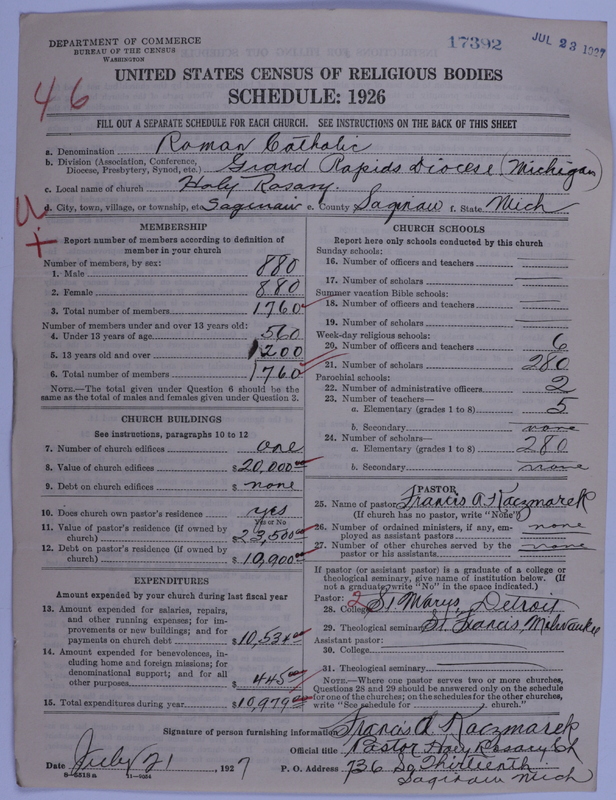 DEPARTMENT OF COMMERCE
BUREAU OF THE CENSUS
WASHINGTON
17392
JUL 23 1927
UNITED STATES CENSUS OF RELIGIOUS BODIES
SCHEDULE: 1926
46
FILL OUT A SEPARATE SCHEDULE FOR EACH CHURCH. SEE INSTRUCTIONS ON THE BACK OF THIS SHEET
a. Denomination Roman Catholic
b. Division (Association, Conference, Diocese, Presbytery, Synod, etc.) Grand Rapids Diocese (Michigan)
c. Local name of church Holy Rosary.
d. City, town, village, or township, etc. Saginaw e. County Saginaw f. State Mich
MEMBERSHIP
Report number of members according to definition of
member in your church
Number of members, by sex:
1. Male 880
2. Female 880
3. Total number of members 1760
Number of members under and over 13 years old:
4. Under 13 years of age 560
5. 13 years old and over 1200
6. Total number of members 1760
NOTE.—The total given under Question 6 should be the
same as the total of males and females given under Question 3.
CHURCH BUILDINGS
See instructions, paragraphs 10 to 12
7. Number of church edifices one
8. Value of church edifices $20,000.00
9. Debt on church edifices $ none
10. Does church own pastor's residence? yes
Yes or No
11. Value of pastor's residence (if owned by
church) $23,500.00
12. Debt on pastor's residence (if owned by
church) $10,900.00
EXPENDITURES
Amount expended by your church during last fiscal year
13. Amount expended for salaries, repairs,
and other running expenses; for im-
provements or new buildings; and for
payments on church debt $10,534.00
14. Amount expended for benevolences, in-
cluding home and foreign missions; for
denominational support; and for all
other purposes $ 445.00
15. Total expenditures during year $10,979.00
CHURCH SCHOOLS
Report here only schools conducted by this church
Sunday schools:
16. Number of officers and teachers
17. Number of scholars
Summer vacation Bible schools:
18. Number of officers and teachers
19. Number of scholars
Week-day religious schools:
20. Number of officers and teachers 6
21. Number of scholars 280
Parochial schools:
22. Number of administrative officers 2
23. Number of teachers—
a. Elementary (grades 1 to 8) 5
b. Secondary none
24. Number of scholars—
a. Elementary (grades 1 to 8) 280
b. Secondary none
PASTOR
25. Name of pastor Francis A Kaczmarek
(If church has no pastor, write "None")
26. Number of ordained ministers, if any, em-
ployed as assistant pastors none
27. Number of other churches served by the
pastor or his assistants none
If pastor (or assistant pastor) is a graduate of a college or
theological seminary, give name of institution below. (If
not a graduate write "No" in the space indicated.)
Pastor: 2
28. College St Marys, Detroit
29. Theological seminary St. Francis, Milwaukee
Assistant pastor:
30. College
31. Theological seminary
NOTE.—Where one pastor serves two or more churches,
Questions 28 and 29 should be answered only on the schedule
for one of the churches; on the schedules for the other churches,
write "See schedule for church."
Signature of person furnishing information Francis A Kaczmarek
Official title Pastor Holy Rosary Ch
Date July 21, 1927 P. O. Address 736 So Thirteenth
Saginaw Mich
8—5518a 11—9034